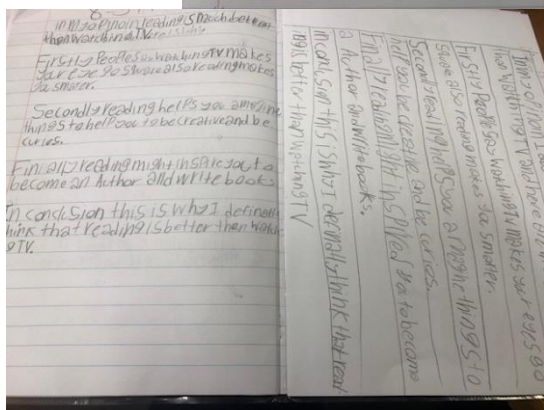 in my opinoin reading is much better
then watching TV.
Firstly People say watching TV makes
your eye go sware also reading makes
you smarter.
Secondly reading helps you amagine
things to help you to be creative and be
curies.
Finially reading might insire you to
become an Author and write books.
In conclusion this is why I defin
think that reading is better then watch
ng TV.
that watching TV and here
Firstly People say watching TV makes your eyes go
sware also reading makes you smarter.
Secondly reading helps you amagine things to
help you be creative and be curies.
Finally reading might insired you to become
a Author and write books.
in conclusion this is why I think that read
ng is better then watching TV